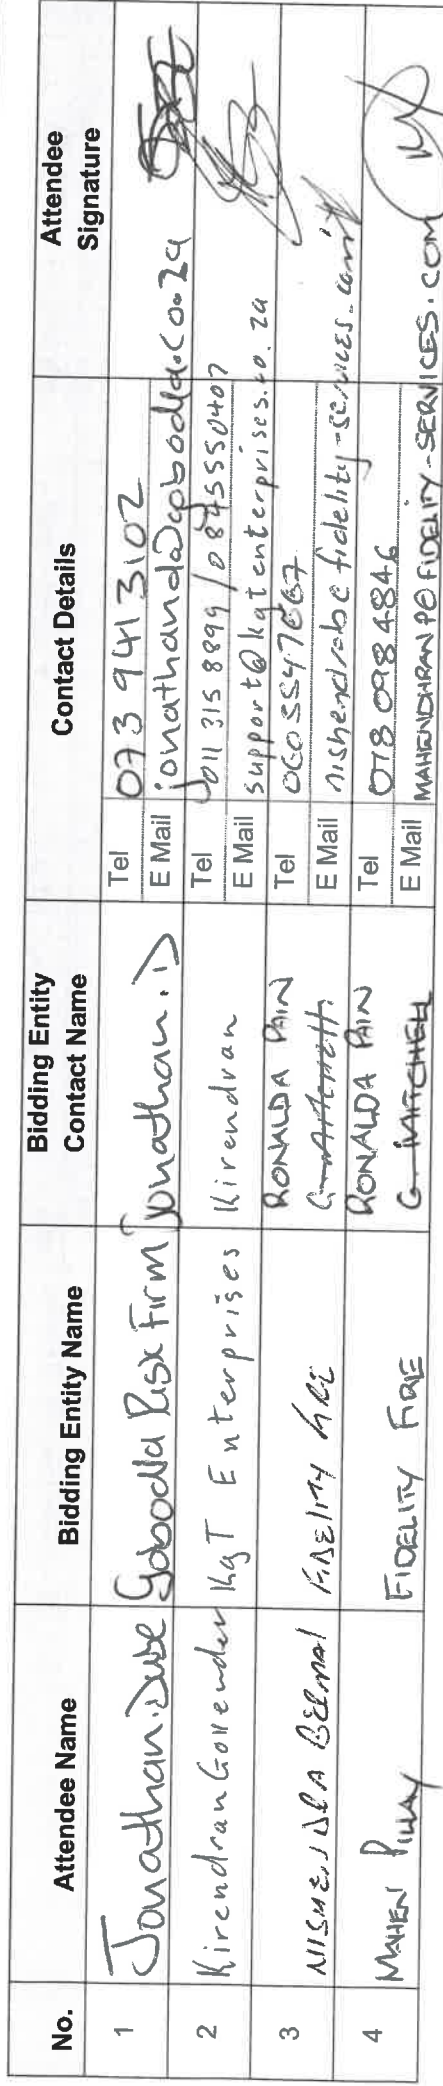 No. Attendee Name Bidding Entity Name Bidding Entity Contact Name Contact Details Attendee Signature
1 Jonathan. Dube Gobodla Risk Firm Jonathan. D Tel 073 941 3102
E Mail
2 Kirendran Govender KgT Enterprises Kirendran Tel 011 315 8899 / 0845550407
E Mail support@kgtenterprises.co.za
3 NISHENDRA BEEMAL FIDELITY RONALDA PAIN Tel
E Mail nishendrab@fidelity-services.com
4 MAHEN PILLAY FIDELITY FIRE RONALDA PAIN Tel 078 098 4846
G. MITCHELL E Mail MAHENDHRANP@FIDELITY-SERVICES.COM